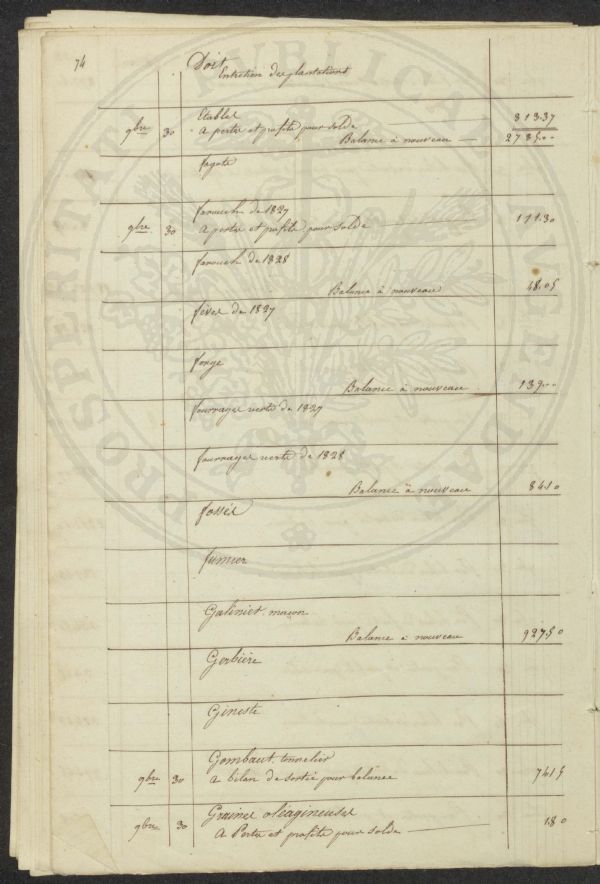 74
Doit
Entretien des plantations
Etables 813.37
9bre 30 a pertes et profits pour solde
Balance à nouveau — 2735..
fagots
farouch de 1827
9bre 30 a pertes et profits pour solde 111.30
farouch de 1828
Balance à nouveau 48.05
fèves de 1827
forge
Balance à nouveau 139..
fourrages verts de 1827
fourrages verts de 1828
Balance à nouveau 84.10
fossés
fumier
Galiniet, maçon
Balance à nouveau 927.50
Gerbière
Gineste
Gombaut, tonnelier
9bre 30 a bilan de sortie pour balance 74.15
Graines oléagineuses
9bre 30 a Pertes et profits pour solde 1.80
PROSPERITATI PUBLICAE AVGENDAE